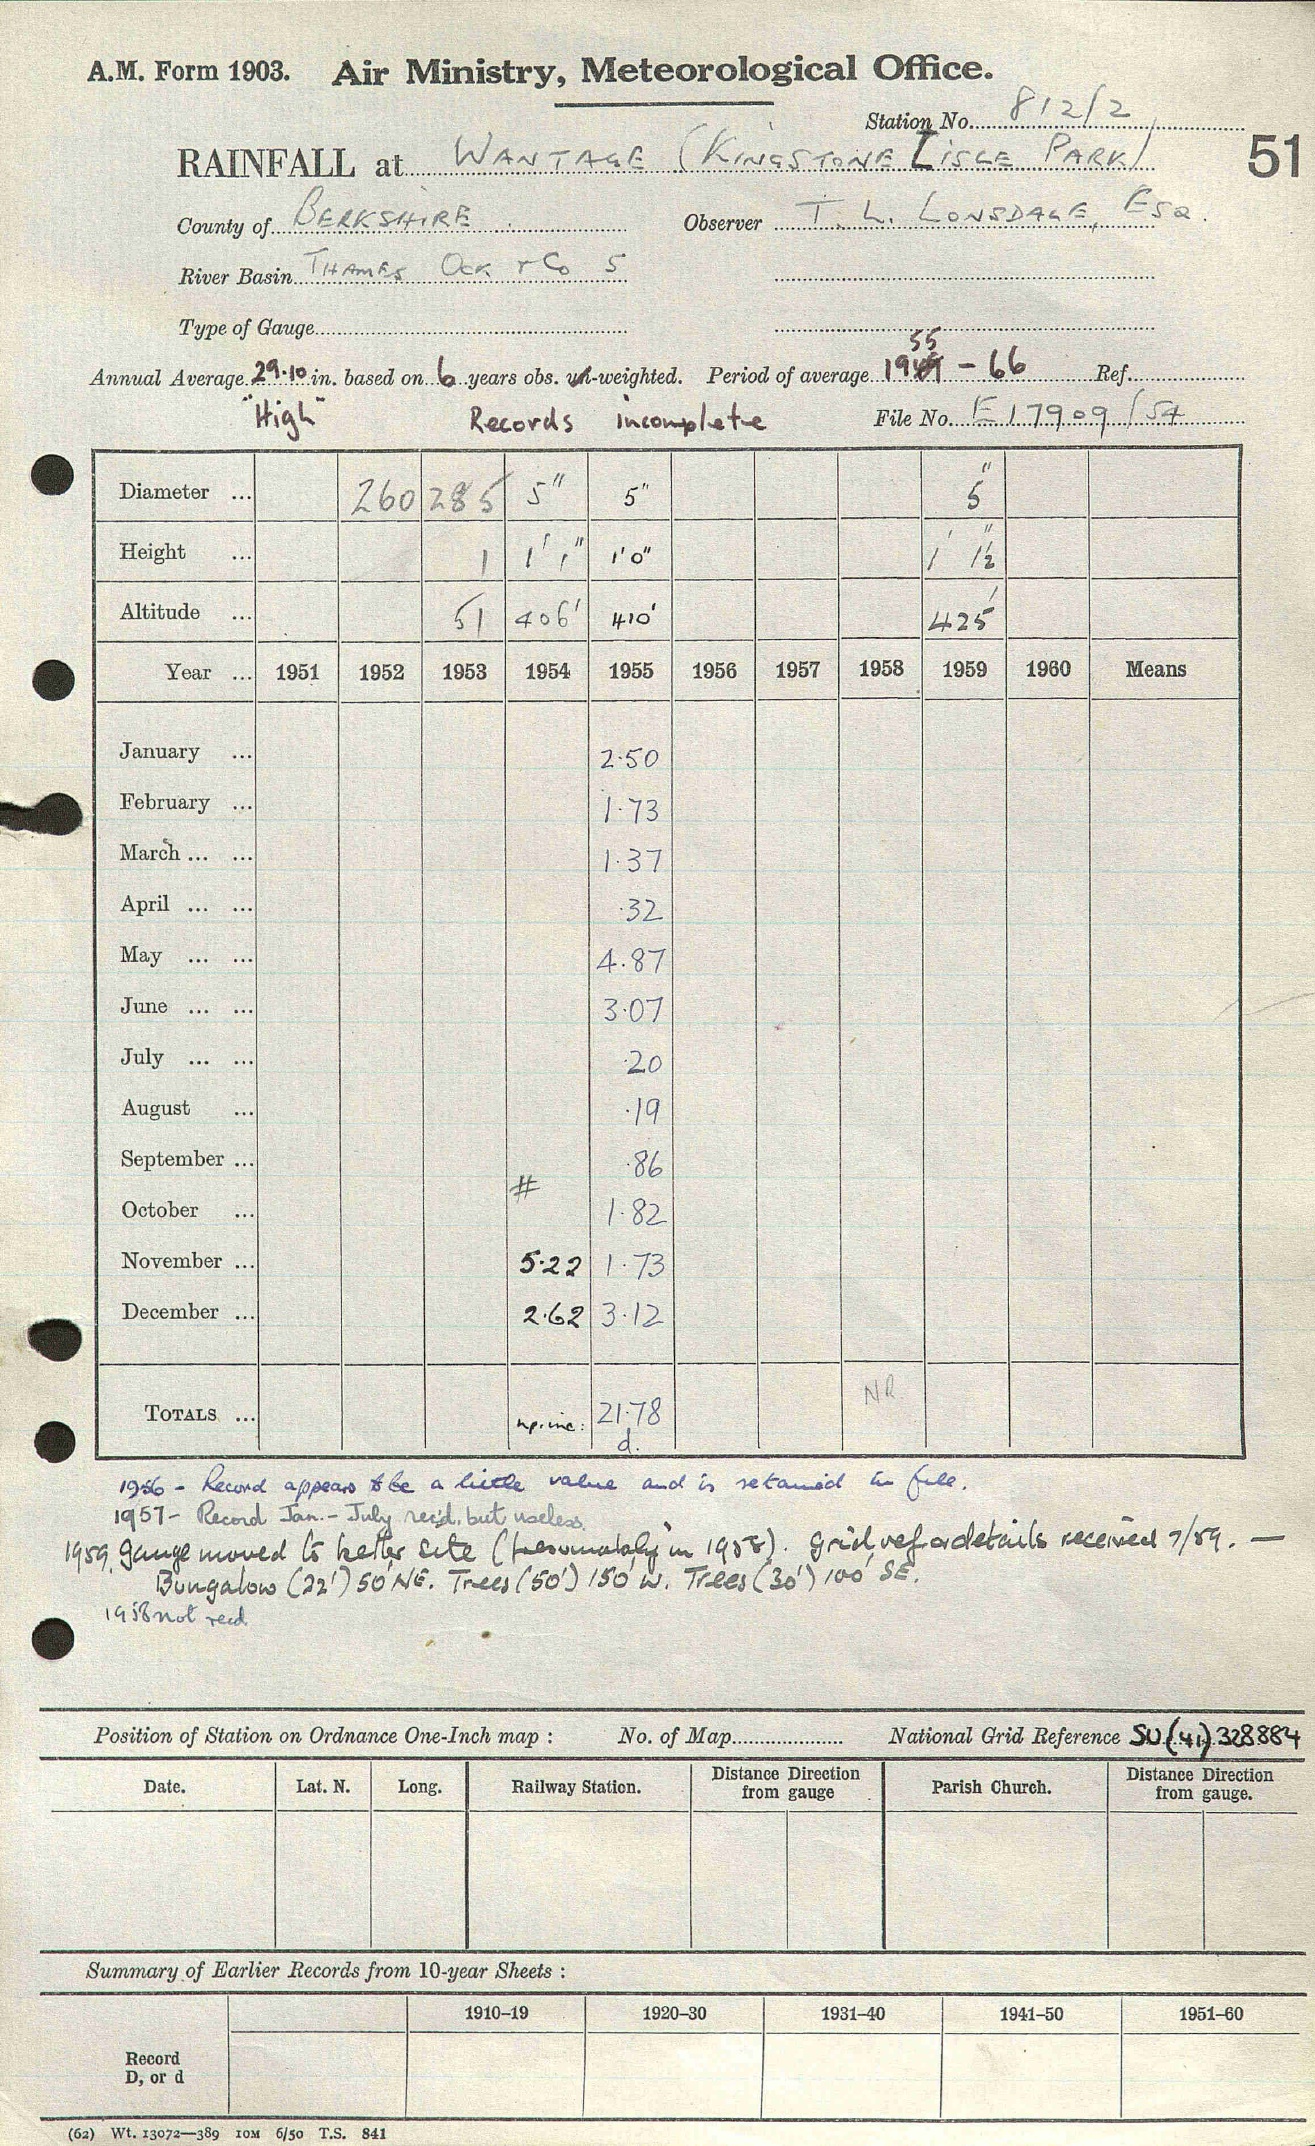 A.M. Form 1903. Air Ministry, Meteorological Office.
Station No. 812/2
RAINFALL at WANTAGE (KINGSTONE LISLE PARK) 51
County of BERKSHIRE. Observer T. L. LONSDALE, ESQ.
River Basin THAMES OCK & Co 5
Type of Gauge
Annual Average 29.10 in. based on 6 years obs. un-weighted. Period of average 1955 - 66 Ref.
"High" Records incomplete File No. E17909/54
Diameter ... 260 285 5" 5" 5"
Height ... 1 1' 1" 1'0" 1' 1½"
Altitude ... 51 406' 410' 425'
Year ... 1951 1952 1953 1954 1955 1956 1957 1958 1959 1960 Means
January ... 2.50
February ... 1.73
March ... ... 1.37
April ... ... .32
May ... ... 4.87
June ... ... 3.07
July ... ... .20
August ... .19
September ... .86
#
October ... 1.82
November ... 5.22 1.73
December ... 2.62 3.12
TOTALS ... inc: 21.78 NR
d.
1956 - Record appears to be a little value and is retained in file.
1957 - Record Jan. - July rec'd, but useless.
1959. Gauge moved to better site (presumably in 1958). Grid ref & details received 7/59. —
Bungalow (22') 50' NE. Trees (50') 150' W. Trees (30') 100' SE.
1958 not recd
Position of Station on Ordnance One-Inch map : No. of Map National Grid Reference SU (41) 328884
Date. Lat. N. Long. Railway Station. Distance Direction from gauge Parish Church. Distance Direction from gauge.
Summary of Earlier Records from 10-year Sheets :
1910–19 1920–30 1931–40 1941–50 1951–60
Record
D, or d
(62) Wt. 13072—389 10M 6/50 T.S. 841